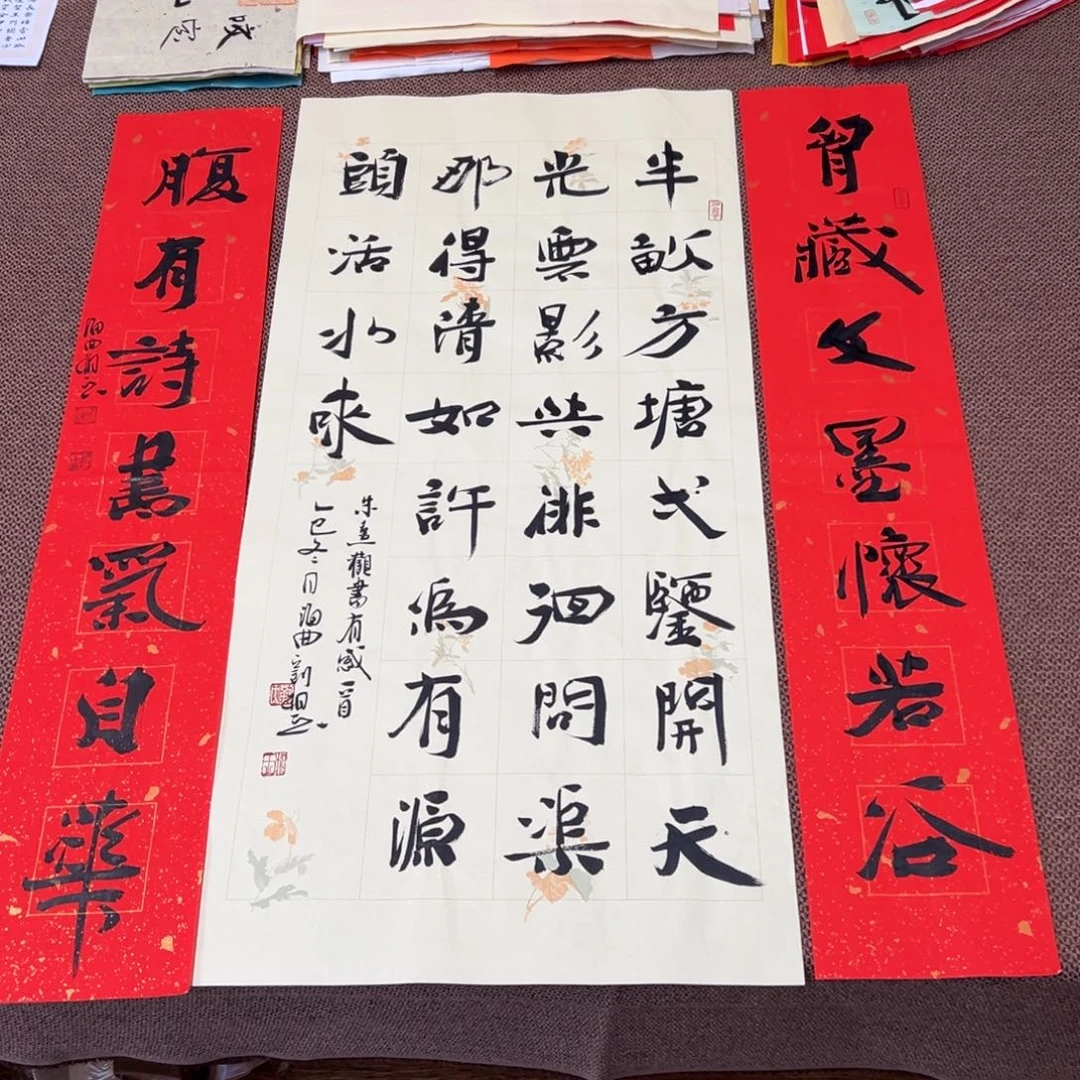 胷藏文墨懷若谷
半畝方塘弌鑒開天
光雲影共徘徊問渠
那得清如許為有源
頭活水來
朱熹觀書有感一首
乙巳冬月
腹有詩書氣自華